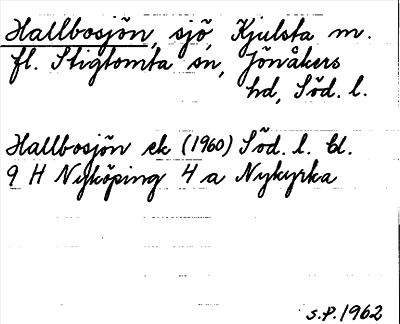 Hallbosjön, sjö, Kjulsta m.
fl. Stigtomta sn, Jönåkers
hd, Söd. l.
Hallbosjön ek (1960) Söd. l. bl.
9 H Nyköping 4 a Nykyrka
S.P. 1962